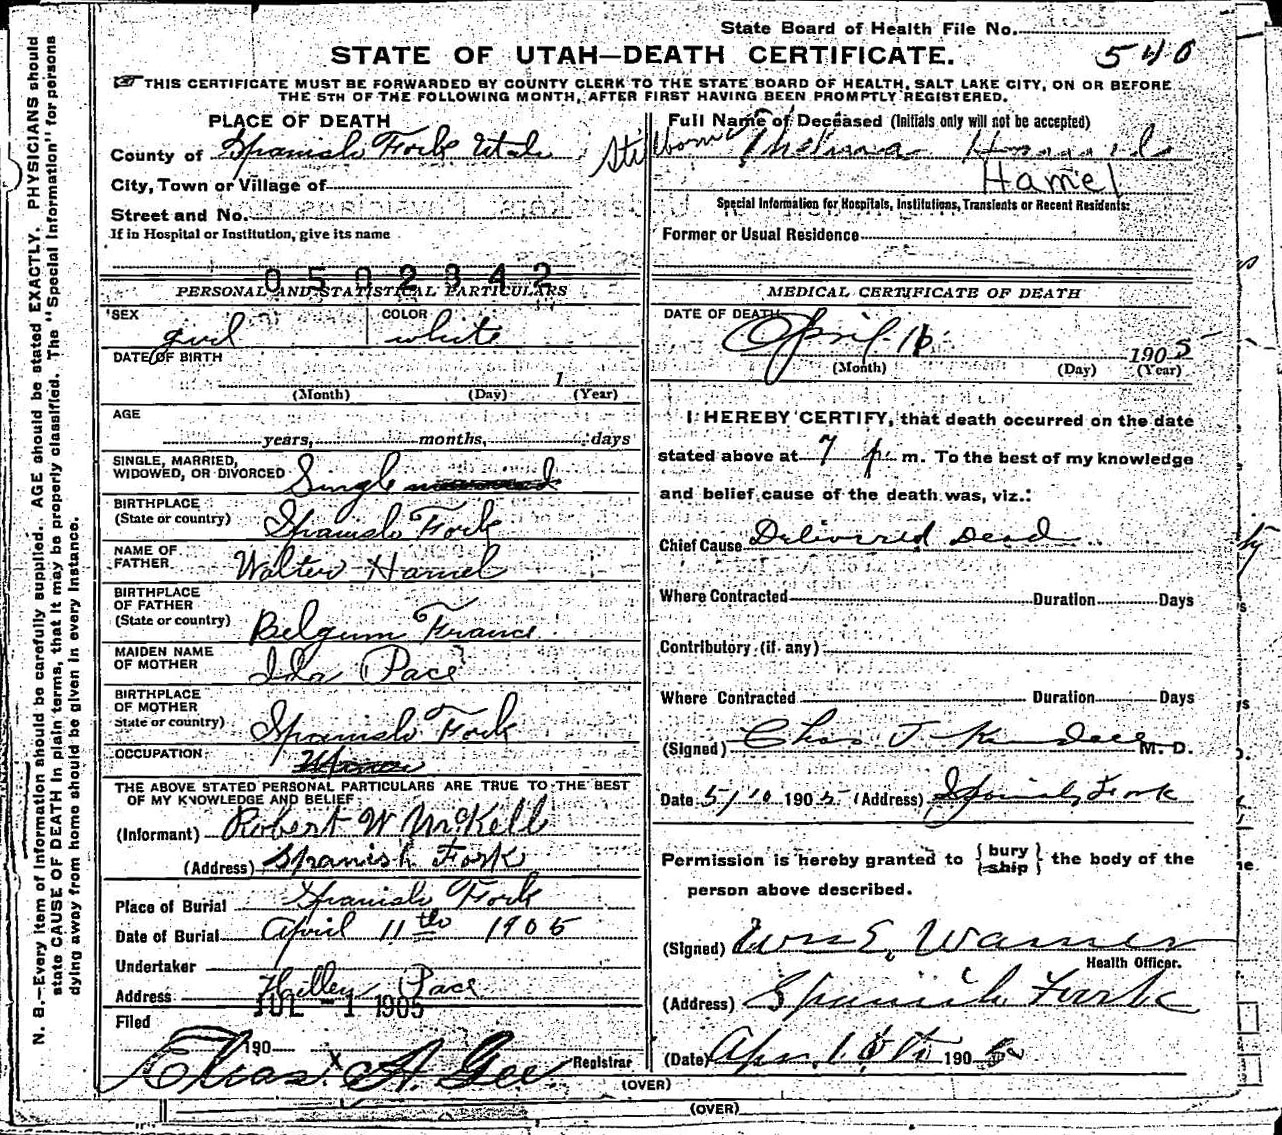 State Board of Health File No.
STATE OF UTAH—DEATH CERTIFICATE.
540
THIS CERTIFICATE MUST BE FORWARDED BY COUNTY CLERK TO THE STATE BOARD OF HEALTH, SALT LAKE CITY, ON OR BEFORE
THE 5TH OF THE FOLLOWING MONTH, AFTER FIRST HAVING BEEN PROMPTLY REGISTERED.
PLACE OF DEATH
County of Spanish Fork Utah
City, Town or Village of
Street and No.
If in Hospital or Institution, give its name
0502342
Full Name of Deceased (Initials only will not be accepted)
Stillborn Thelma
Hamel
Special Information for Hospitals, Institutions, Transients or Recent Residents:
Former or Usual Residence
PERSONAL AND STATISTICAL PARTICULARS
SEX girl COLOR white
DATE OF BIRTH
1
(Month) (Day) (Year)
AGE
years, months, days
SINGLE, MARRIED,
WIDOWED, OR DIVORCED Single
BIRTHPLACE
(State or country) Spanish Fork
NAME OF
FATHER Walter Hamel
BIRTHPLACE
OF FATHER
(State or country) Belgum France
MAIDEN NAME
OF MOTHER Ida Pace
BIRTHPLACE
OF MOTHER
State or country) Spanish Fork
OCCUPATION
THE ABOVE STATED PERSONAL PARTICULARS ARE TRUE TO THE BEST
OF MY KNOWLEDGE AND BELIEF
(Informant) Robert W McKell
(Address) Spanish Fork
Place of Burial Spanish Fork
Date of Burial April 11th 1905
Undertaker
Address Hilley Pace
JUL -1 1905
Filed
190 X
Elias A. Gee Registrar
MEDICAL CERTIFICATE OF DEATH
DATE OF DEATH
April 1905
(Month) (Day) (Year)
I HEREBY CERTIFY, that death occurred on the date
stated above at 7 p m. To the best of my knowledge
and belief cause of the death was, viz.:
Chief Cause Delivered Dead
Where Contracted Duration Days
Contributory (if any)
Where Contracted Duration Days
(Signed) Chas J M. D.
Date 5/10 1905 (Address) Spanish Fork
Permission is hereby granted to { bury ship } the body of the
person above described.
(Signed) Wm E. Warner
Health Officer.
(Address) Spanish Fork
(Date) Apr. 190
(OVER)
(OVER)
N. B.—Every item of information should be carefully supplied. AGE should be stated EXACTLY. PHYSICIANS should
state CAUSE OF DEATH in plain terms, that it may be properly classified. The "Special Information" for persons
dying away from home should be given in every instance.